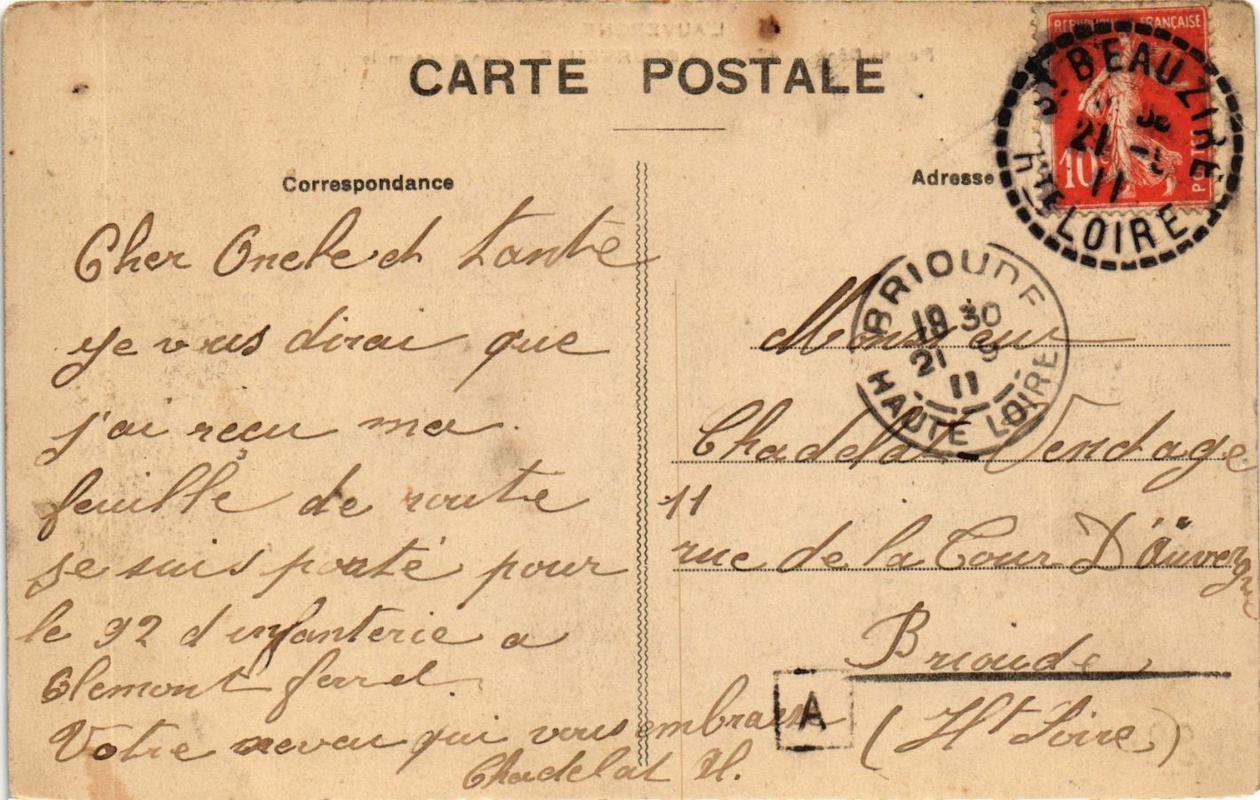 CARTE POSTALE
Correspondance
Cher Oncle et tante
je vous dirai que
j'ai reçu ma
feuille de route
je suis porté pour
le 92 d'infanterie a
Clemont ferrel.
Votre neveu qui vous embrasse
Chadelat H.
Adresse
RÉPUBLIQUE FRANÇAISE
10c
POSTES
ST BEAUZIRE
21
11
HTE LOIRE
BRIOUDE
18 30
21 9
11
HAUTE LOIRE
Monsieur
Chadelat Vendage
11
rue de la Cour D'Auvergne
Brioude
(Ht Loire)
A